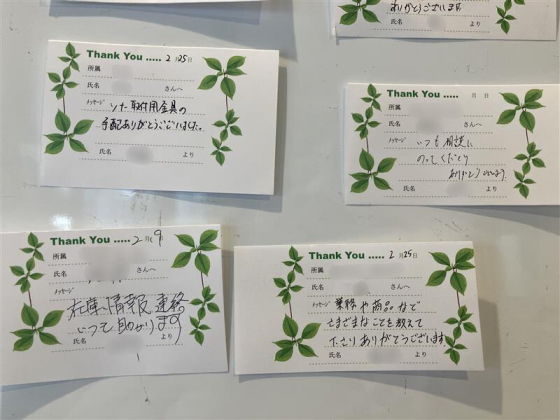 ありがとうございます
Thank You ..... 2月25日
所属
氏名 さんへ
メッセージ ソケ取付用金具の
手配ありがとうございました。
氏名 より
Thank You ..... 月 日
所属
氏名 さんへ
メッセージ いつも相談に
のってくださり
ありがとうございます。
氏名 より
Thank You ..... 2月9
所属
氏名 さんへ
メッセージ 在庫、情報、連絡
いつも助かります
氏名 より
Thank You ..... 2月25日
所属
氏名 さんへ
メッセージ 業務や商品など
さまざまなことを教えて
下さりありがとうございます。
氏名 より